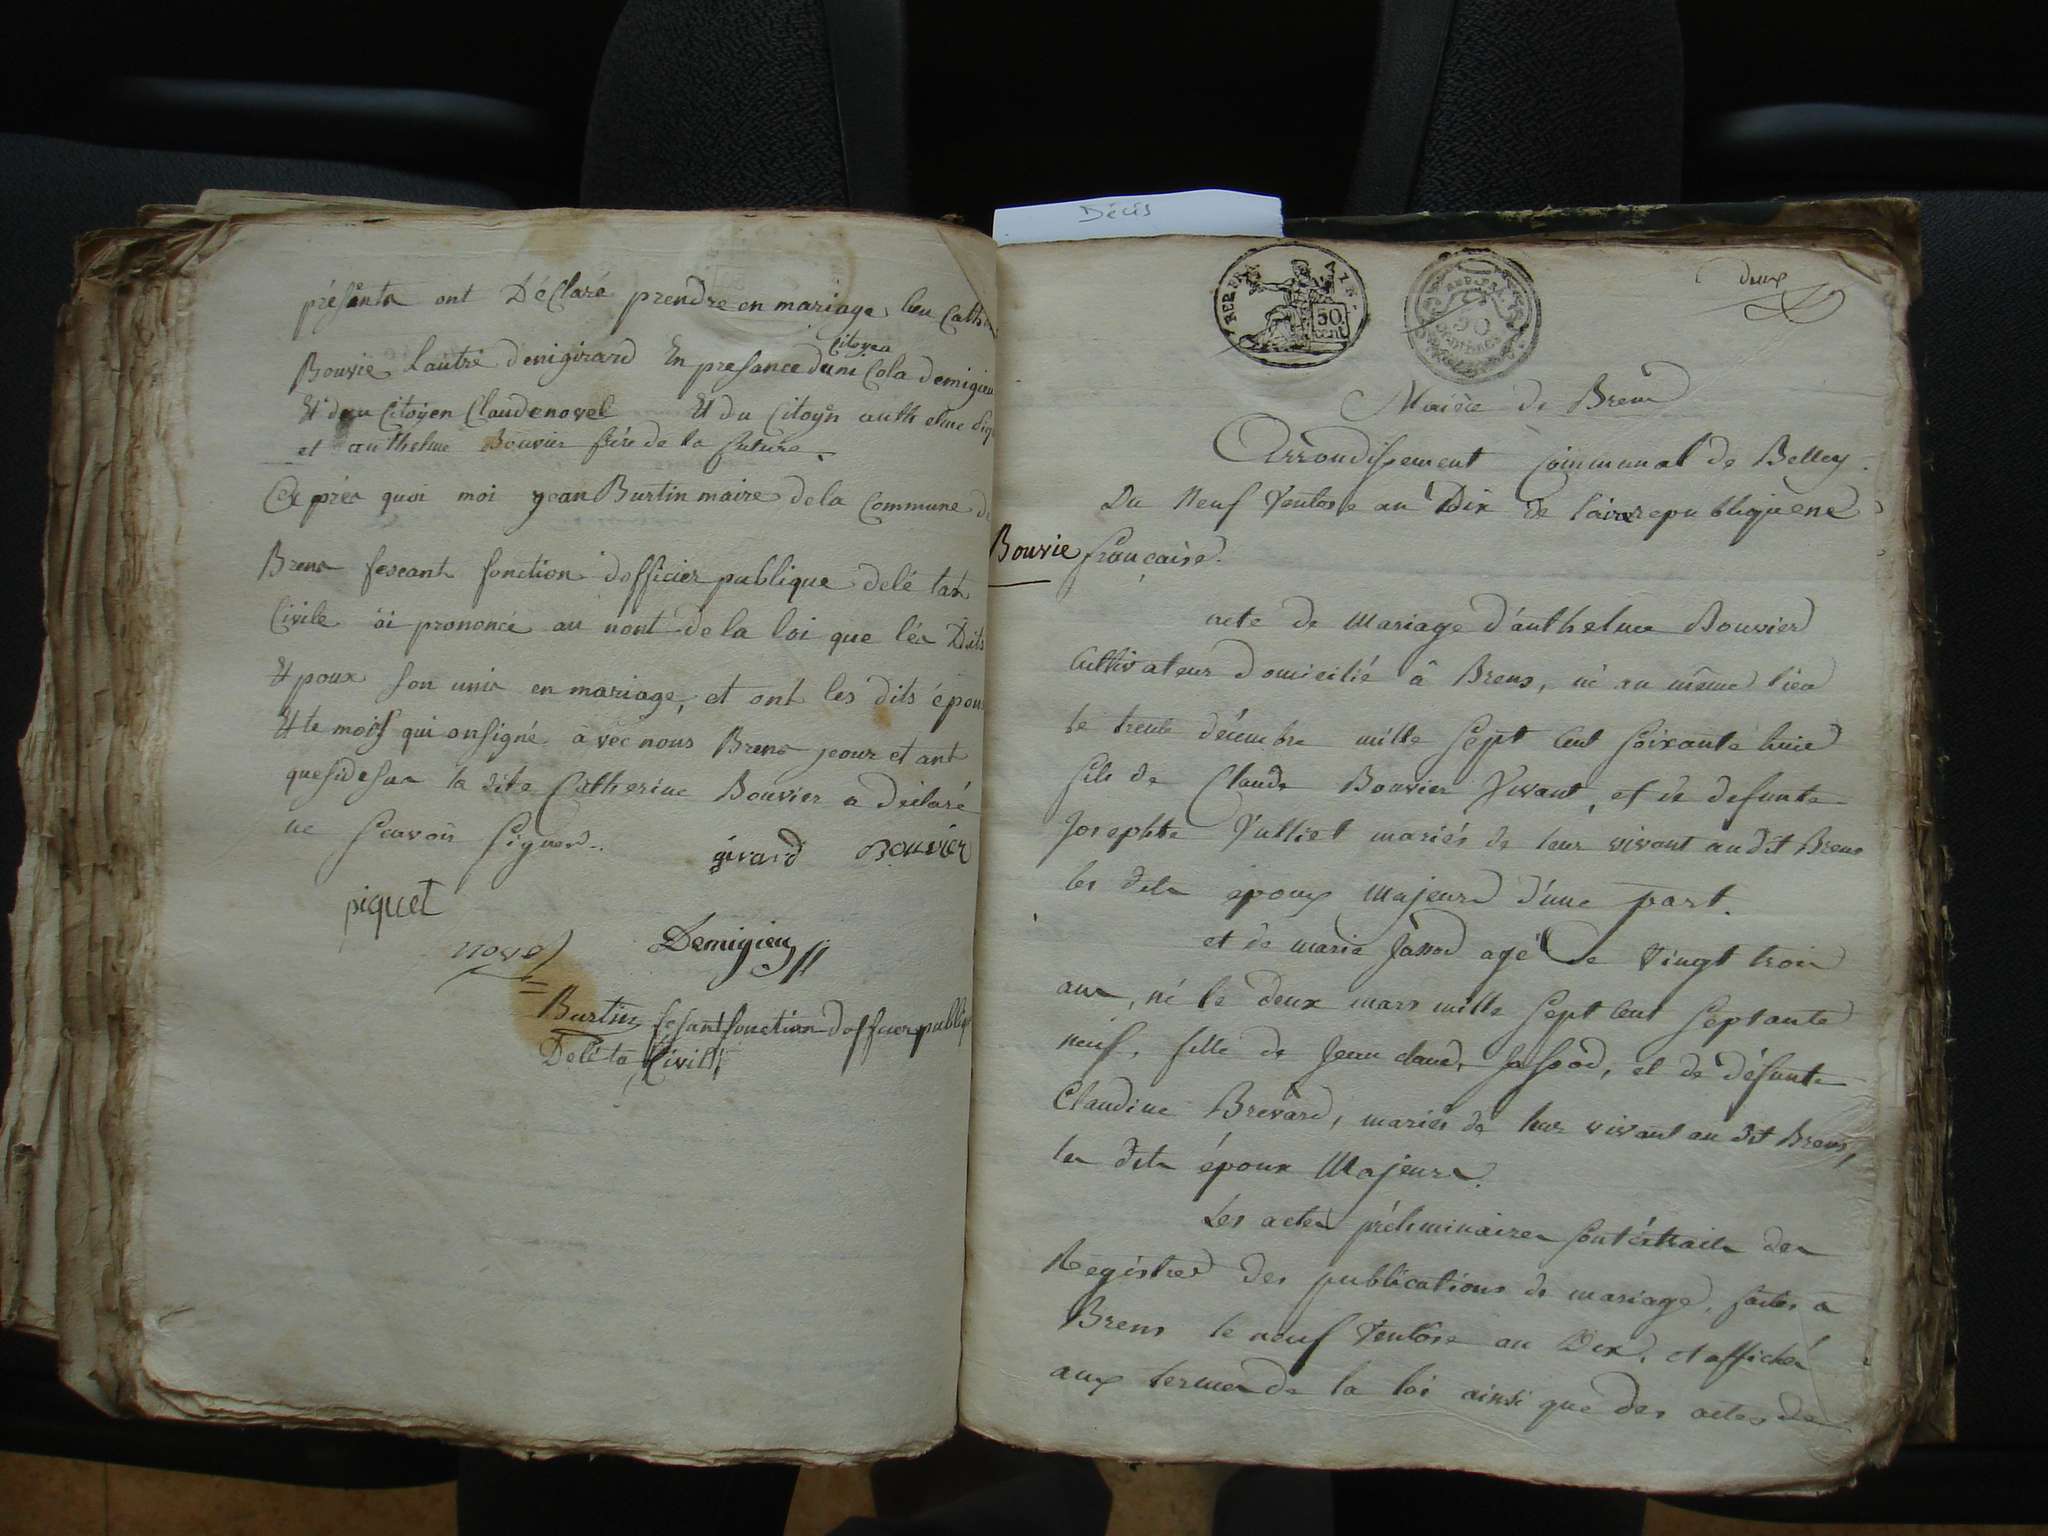 présents ont Déclaré prendre en mariage, leu Cathe
Bouvie Lautre denigirard En presance dune Citoyen Cola demigieu
Et du Citoyen Claude novel Et du Citoyn authelme
et authelme Bouvier frère de la future.
Ce près quoi moi jean Burtin maire de la Commune de
Brens feseant fonction dofficier publique delé tat
Civile ai prononcé au nont de la loi que lés Dits
Et poux son unis en mariage, et ont les dits épou
Et te mois qui onsigné avec nous Brens jeour et ant
que sidesus la dite Catherine Bouvier a déclaré
ne Scavoir Signer.
girard Bouvier
piquet
novel Demigieu
Burtin fesant fonction dofficier publiq
Deléta Civill
Décès
REP. FRA. 50 cent
50
deux
Mairie de Brens
Arrondissement Communal de Belley.
Du Neuf Ventose an Dix de l'aire republiquene
Bouvie française.
acte de Mariage d'anthelme Bouvier
Cultivateur domicilié à Brens, né au même lieu
le trente décembre mille Sept Cent Soixante huit
fils de Claude Bouvier Vivant, et de defunte
Josephte Julliet mariés de leur vivant audit Brens
les dits époux Majeurs d'une part.
et de marie Jassod agé de Vingt trois
ans, né le deux mars mille Sept Cent Septante
neuf, fille de Jean claude Jassod, et de défunte
Claudine Brevard, mariés de leur vivant au dit Brens,
les dits époux Majeurs.
Les actes préliminaires sont éxtraits des
Registres des publications de mariage, faites à
Brens le neuf Ventose an Dix, et affichés
aux termes de la loi ainsi que des actes de